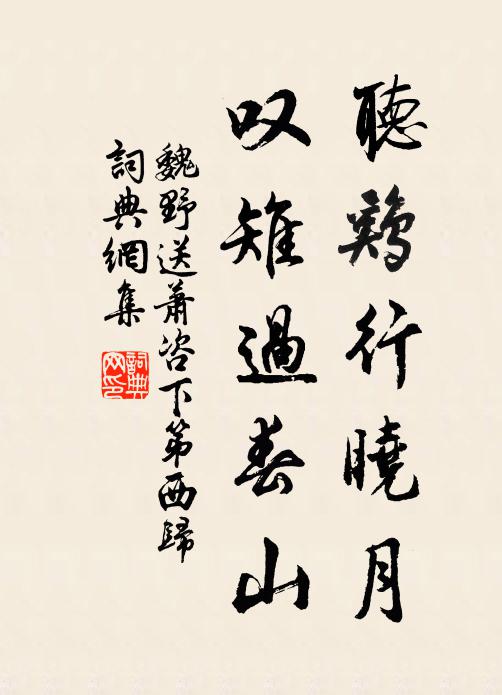 聽鷄行曉月
叹雉過春山
魏野送萧咨下第西歸
詞典網集
詞典网印